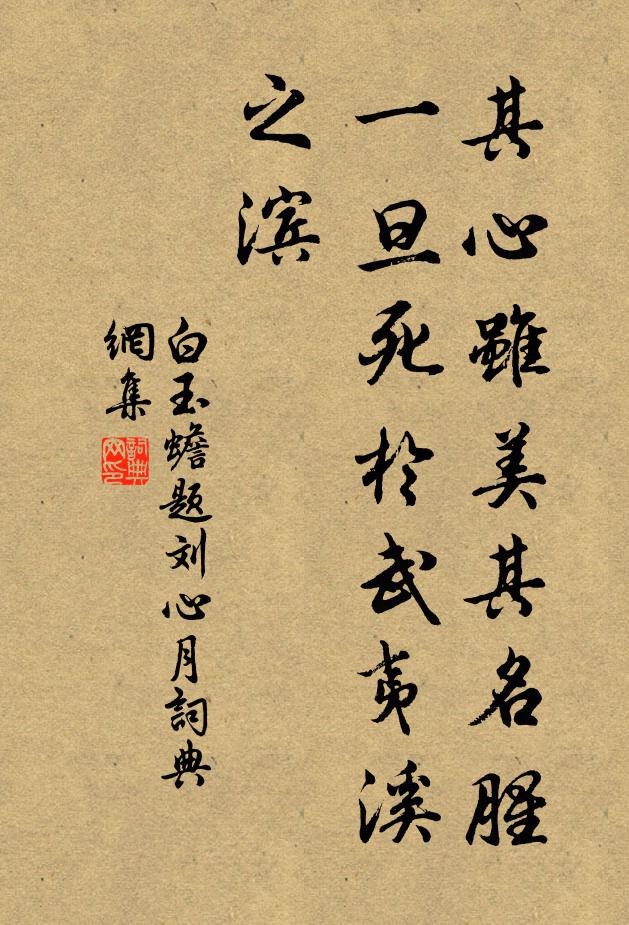 其心雖美其名腥
一旦死於武夷溪
之滨
白玉蟾题刘心月詞典
網集
詞典网印